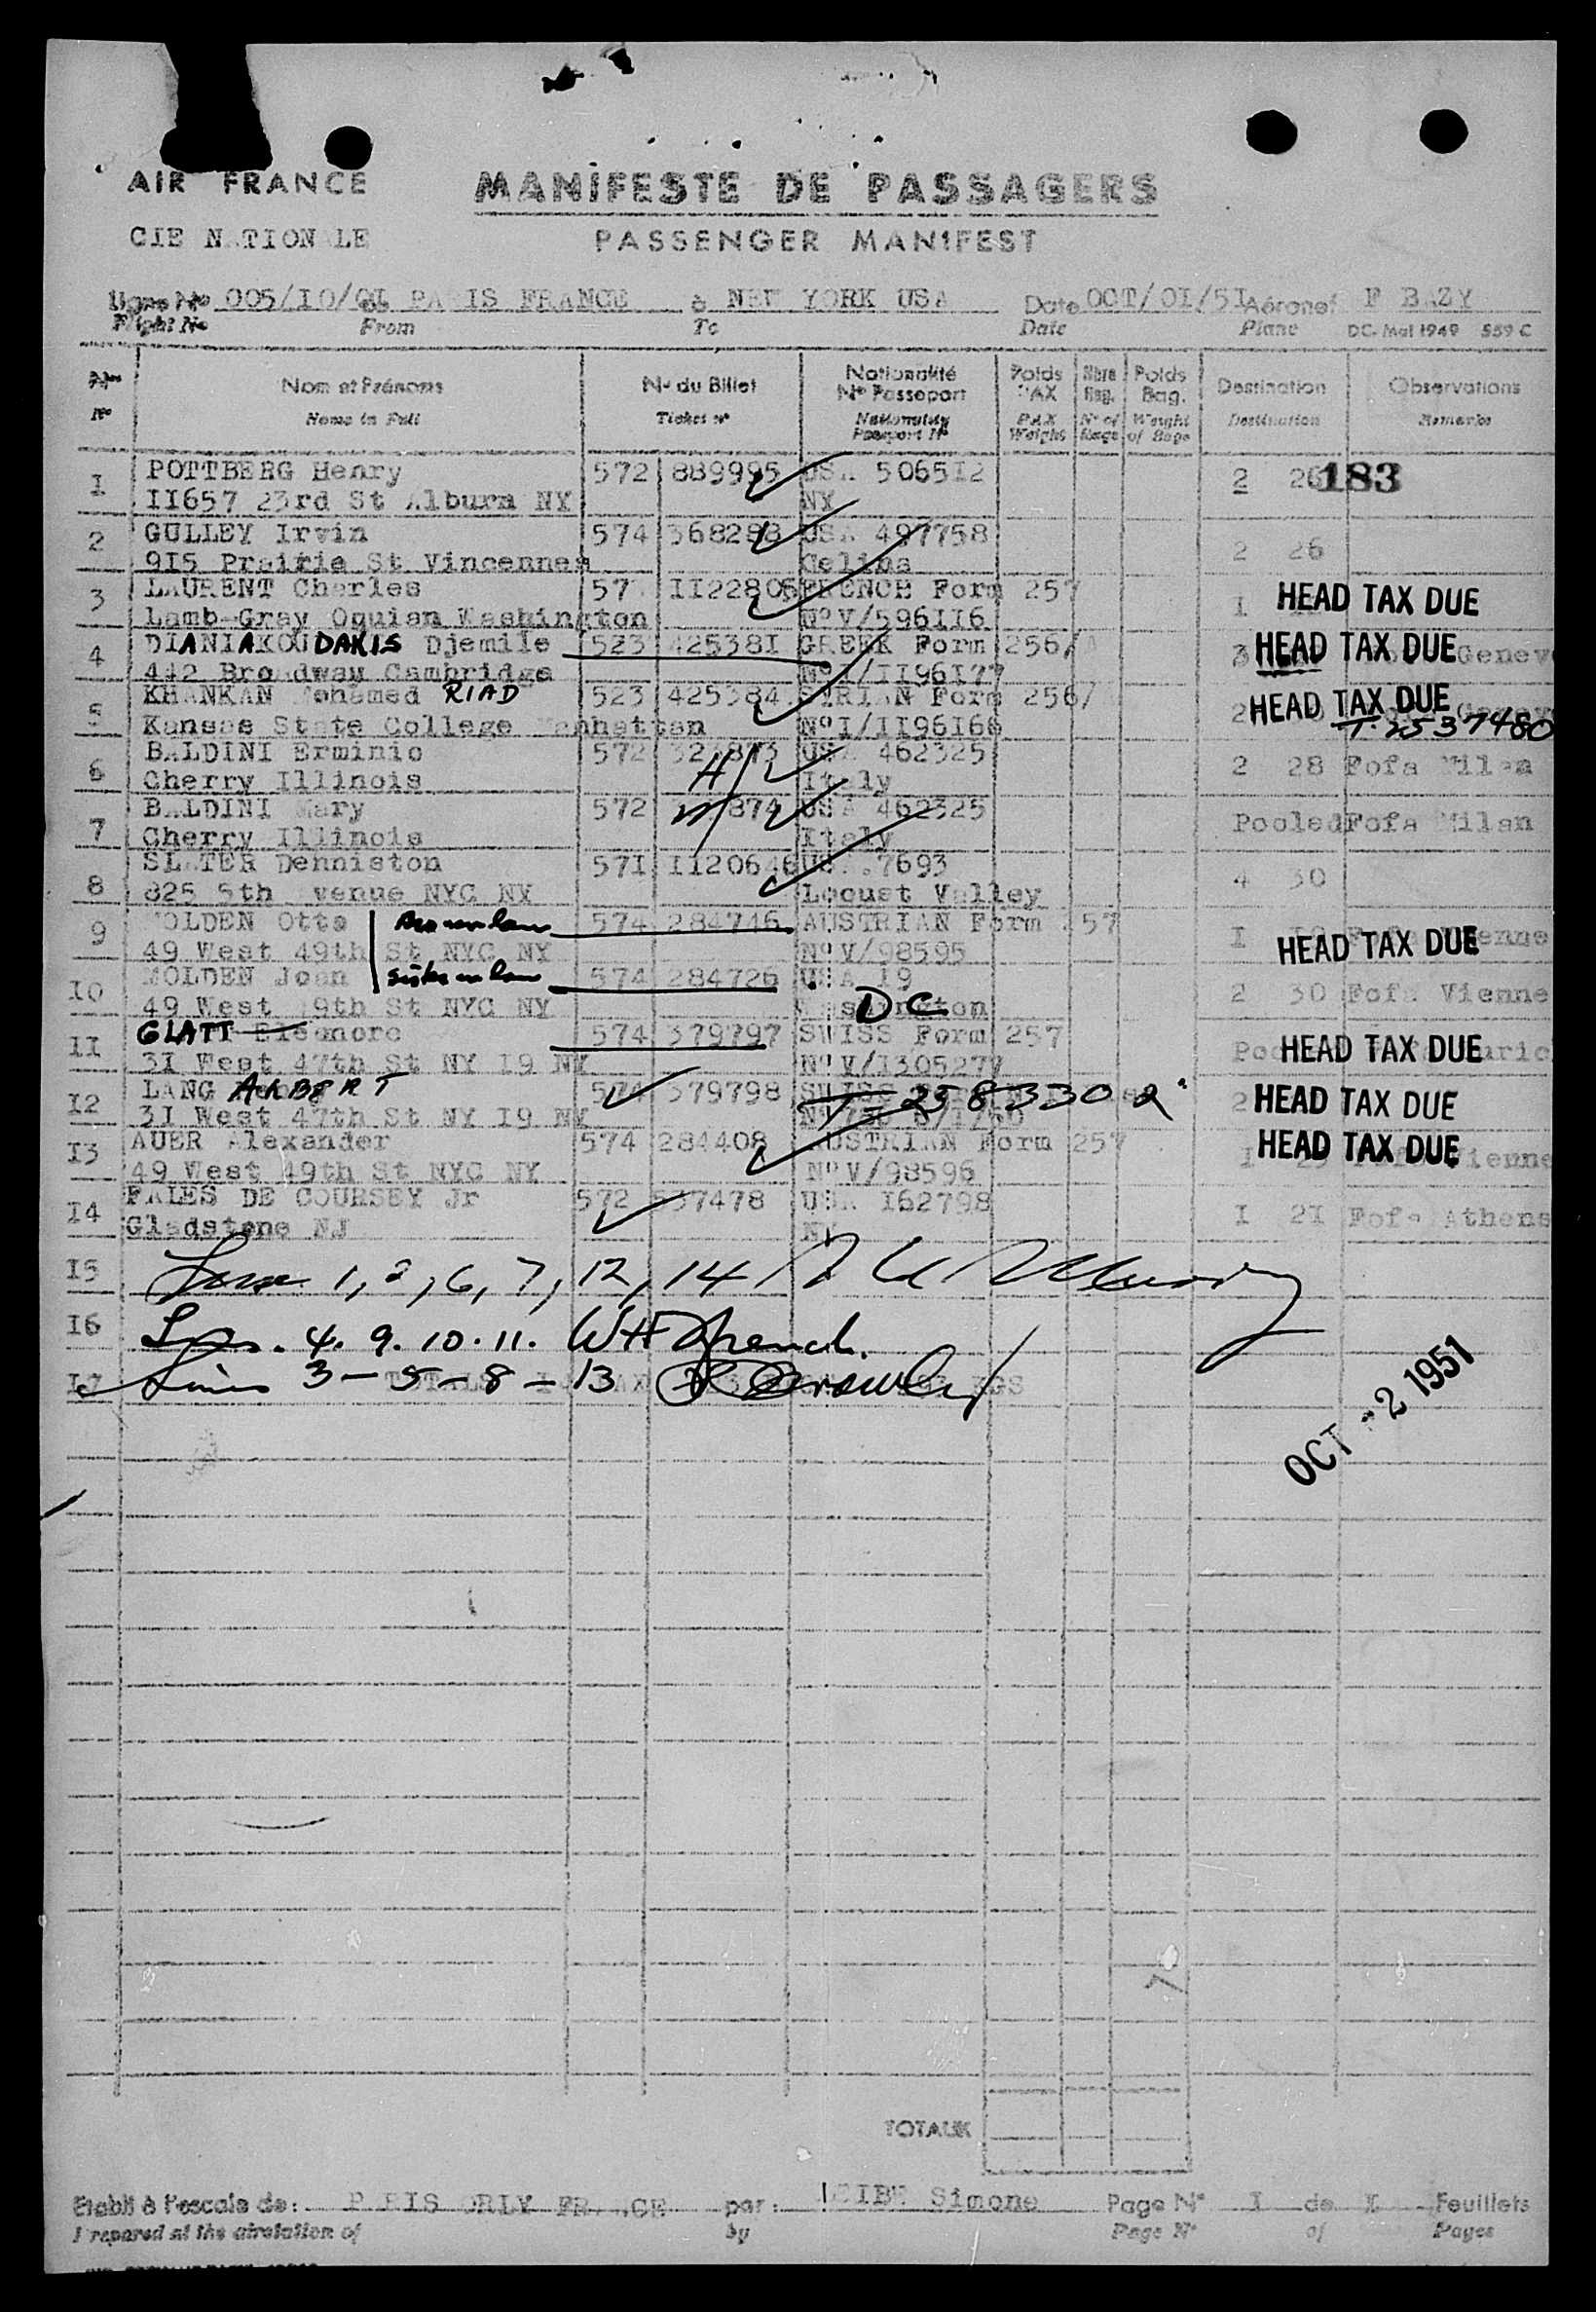 AIR FRANCE
MANIFESTE DE PASSAGERS
CIE N.TION LE
PASSENGER MANIFEST
Ligne No 005/I0/0I PA IS FRANCE à NEW YORK USA Date OCT/0I/5I Aéronef F BAZY
Flight No From To Date Plane DC. Mai 1949 559 C
Nos Nom et Prénoms No du Billet Nationalité No Passeport Poids PAX Nbre Bag. Poids Bag. Destination Observations
No Name in Full Ticket No Nationality Passport No PAX Weight No of Bags Weight of Bags Destination Remarks
I POTTBERG Henry 572 889995 US. 5065I2 2 26 183
II657 23rd St Alburn NY NY
2 GULLEY Irvin 574 368288 USA 497758 2 26
9I5 Prairie St Vincennes Celina
3 LAURENT Charles 57 II22805 FRENCH Form 257 I HEAD TAX DUE
Lamb-Gray Oquian Washington No V/596II6
4 DIANIAKOUDAKIS Djemile 523 42538I GREEK Form 256/A 3 HEAD TAX DUE Genev
442 Broadway Cambridge No I/II96I77
5 KHANKAN Mohamed RIAD 523 425384 SYRIAN Form 256/ 2 HEAD TAX DUE
Kansas State College Manhattan No I/II96I66 T-2537480
6 BALDINI Erminio 572 H/ US. 462325 2 28 Fofa Milan
Cherry Illinois Italy
7 BALDINI Mary 572 874 USA 462325 Pooled Fofa Milan
Cherry Illinois Italy
8 SLATER Denniston 57I II20646 US. 7693 4 30
825 5th Avenue NYC NY Locust Valley
9 MOLDEN Otto 574 284746 AUSTRIAN Form 257 I HEAD TAX DUE ienne
49 West 49th St NYC NY No V/98595
I0 MOLDEN Joan sister in law 574 284726 USA I9 2 30 Fofa Vienne
49 West 49th St NYC NY Washington DC
II GLATT Eleonore 574 379797 SWISS Form 257 HEAD TAX DUE uric
3I West 47th St NY I9 NY No V/I305277
I2 LANG ALBERT 574 379798 T-2583302 2 HEAD TAX DUE
3I West 47th St NY I9 NY
I3 AUER Alexander 574 284408 AUSTRIAN Form 257 I HEAD TAX DUE ienne
49 West 49th St NYC NY No V/98596
I4 FALES DE COURSEY Jr 572 37478 USA I62798 I 2I Fofa Athens
Gladstone NJ NY
I5 1, 2, 6, 7, 12, 14
I6 4. 9. 10. 11. WH French.
I7 Lines 3-5-8-13 Crowley
OCT -2 1951
TOTAUX
Etabli à l'escale de: P RIS ORLY FRANCE par: Simone Page No I de I Feuillets
Prepared at the airstation of by Page No of Pages